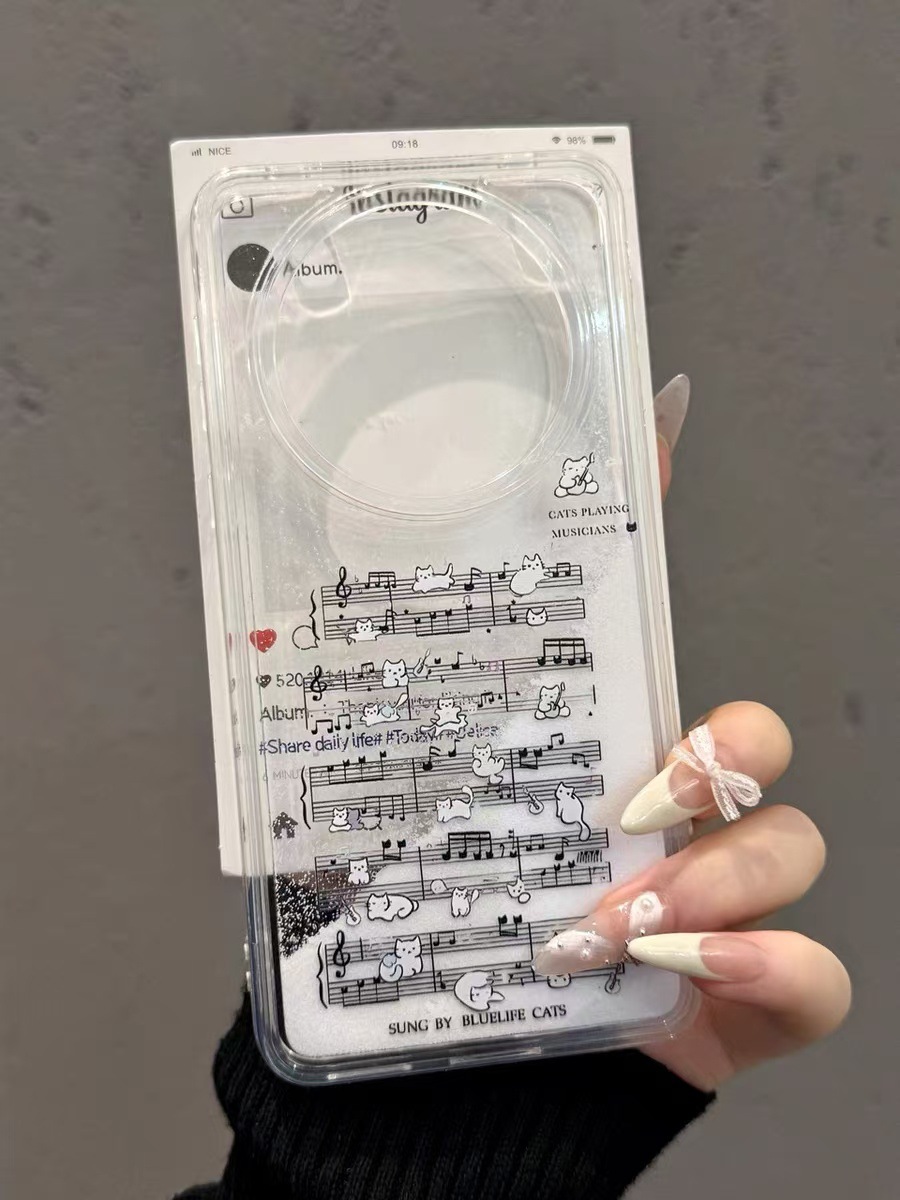 NICE 09:18 98%
Instagram
Album.
CATS PLAYING
MUSICIANS
520
Album.
#Share daily life# #Today#
MINU
SUNG BY BLUELIFE CATS